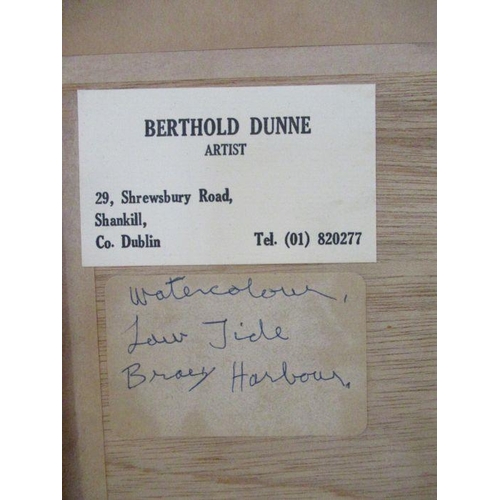 BERTHOLD DUNNE
ARTIST
29, Shrewsbury Road,
Shankill,
Co. Dublin Tel. (01) 820277
Watercolour,
Low Tide
Bray Harbour.